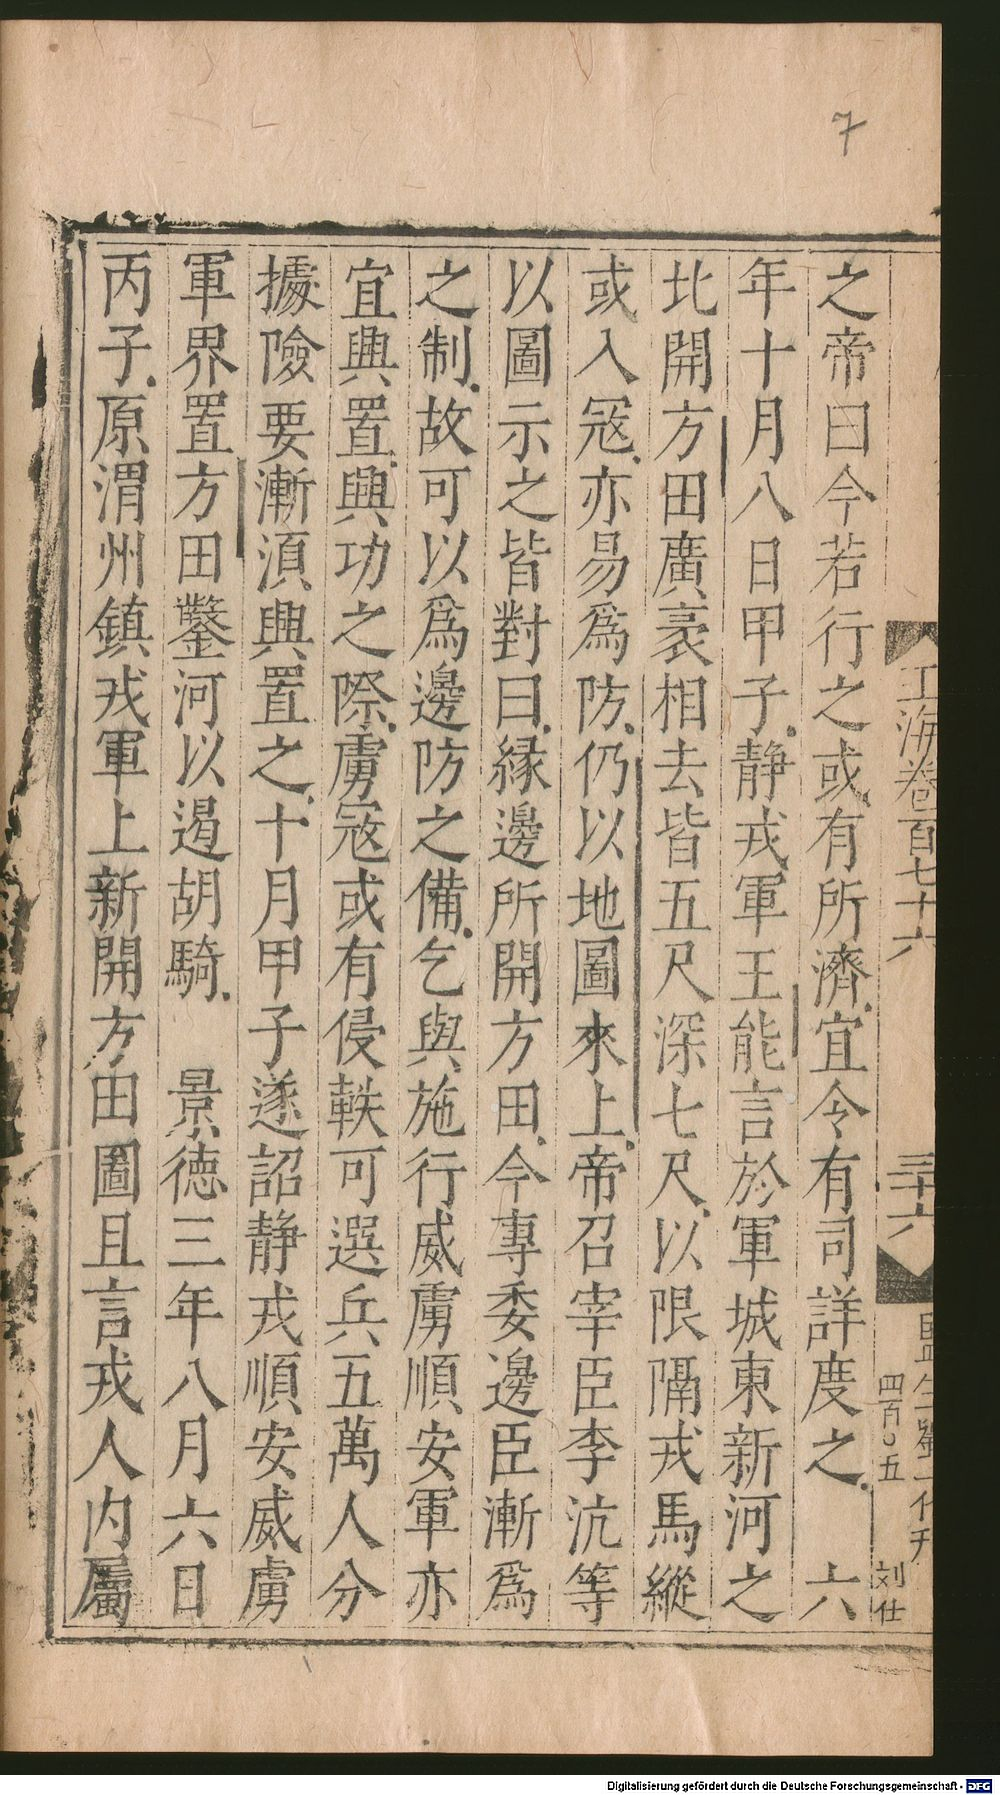 7
之帝曰今若行之或有所濟宜令有司詳度之　六
年十月八日甲子静戎軍王能言於軍城東新河之
北開方田廣袤相去皆五尺深七尺以限隔戎馬縱
或入冦亦易爲防仍以地圖來上帝召宰臣李沆等
以圖示之皆對曰縁邊所開方田今專委邊臣漸爲
之制故可以爲邊防之備乞與施行威虜順安軍亦
宜興置興功之際虜冦或有侵軼可選兵五萬人分
據險要漸湏興置之十月甲子遂詔静戎順安威虜
軍界置方田鑿河以遏胡騎　景徳三年八月六日
丙子原渭州鎮戎軍上新開方田圖且言戎人内屬
玉海卷百七十六
三十六
四百〇五
刘仕
Digitalisierung gefördert durch die Deutsche Forschungsgemeinschaft - DFG